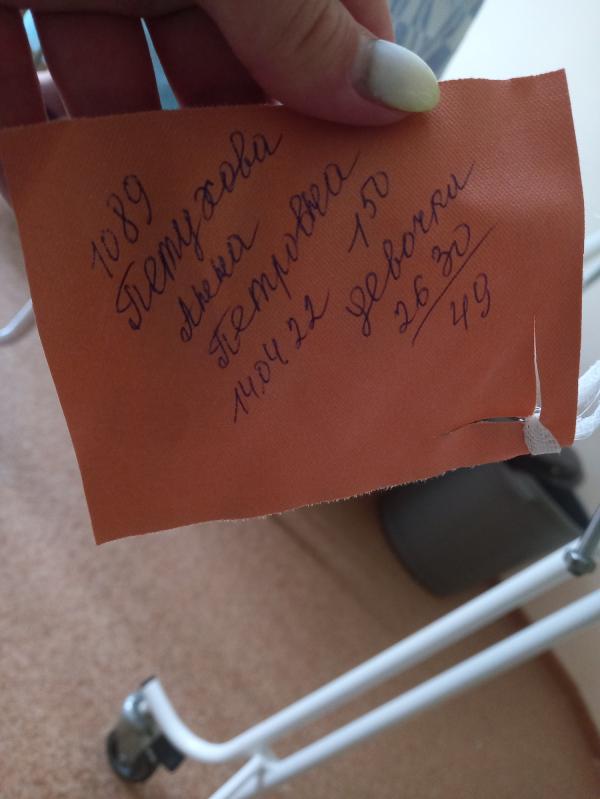 1089
Петухова
Алена
Петровна
14.04.22 1 50
девочка
26 30
49